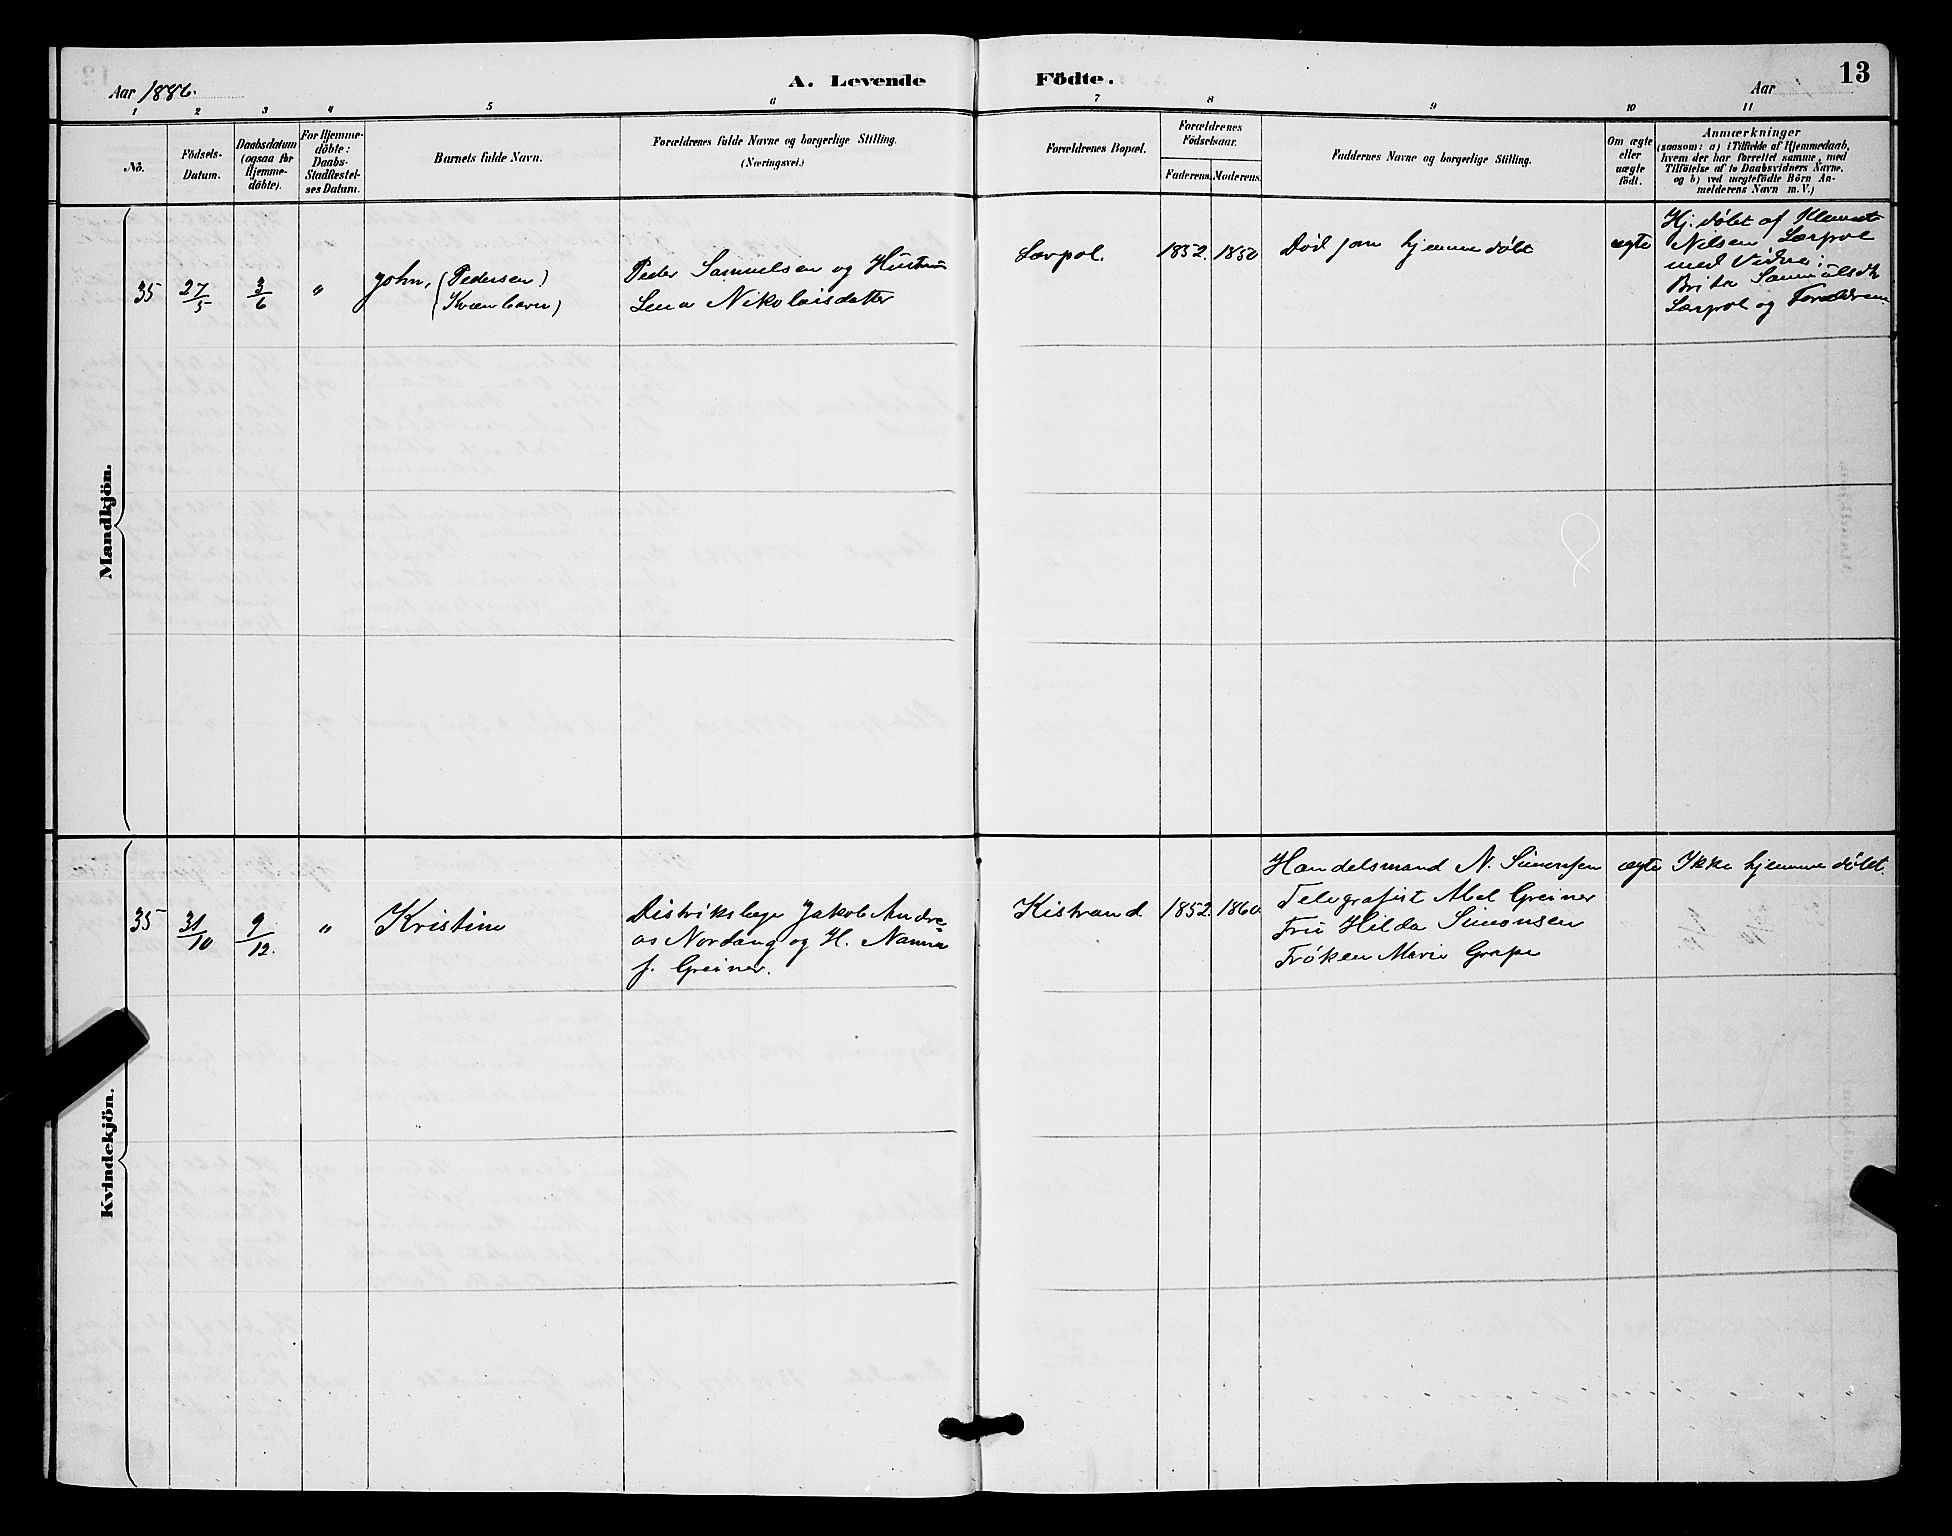 Aar 1886.
A. Levende Födte.
Aar
13
1 2 3 4 5 6 7 8 9 10 11
No.
Födsels-
Datum.
Daabsdatum
(ogsaa for
Hjemme-
döbte).
For Hjemme-
döbte:
Daabs-
Stadfæstel-
ses Datum.
Barnets fulde Navn.
Forældrenes fulde Navne og borgerlige Stilling.
(Næringsvei.)
Forældrenes Bopæl.
Forældrenes
Födselsaar.
Faderens. Moderens.
Faddernes Navne og borgerlige Stilling.
Om ægte
eller
uægte
födt.
Anmærkninger
(saasom: a) i Tilfælde af Hjemmedaab,
hvem der har forrettet samme, med
Tilföielse af to Daabsvidners Navne,
og b) ved uægtefödte Börn An-
melderens Navn m.V.)
Mandkjön.
35
27/5
3/6
"
John, (Pedersen)
(Kvænbarn)
Peder Samuelsen og Hustru
Lena Nikolaisdatter
Lærpol.
1852. 1850
Død som hjemmedøbt
ægte
Hj. døbt af Klemet
Nilsen Lærpol
med Vidner:
Brita Samuelsdtr
Lærpol og Forældrene
Kvindekjön.
35
31/10
9/12.
"
Kristine
Distrikslæge Jakob Andre-
as Nordang og H. Nanna
f. Greiner.
Kistrand
1852. 1860
Handelsmand N. Simonsen
Telegrafist Abel Greiner
Fru Hilda Simonsen
Frøken Marie Grape
ægte
Ikke hjemmedøbt.